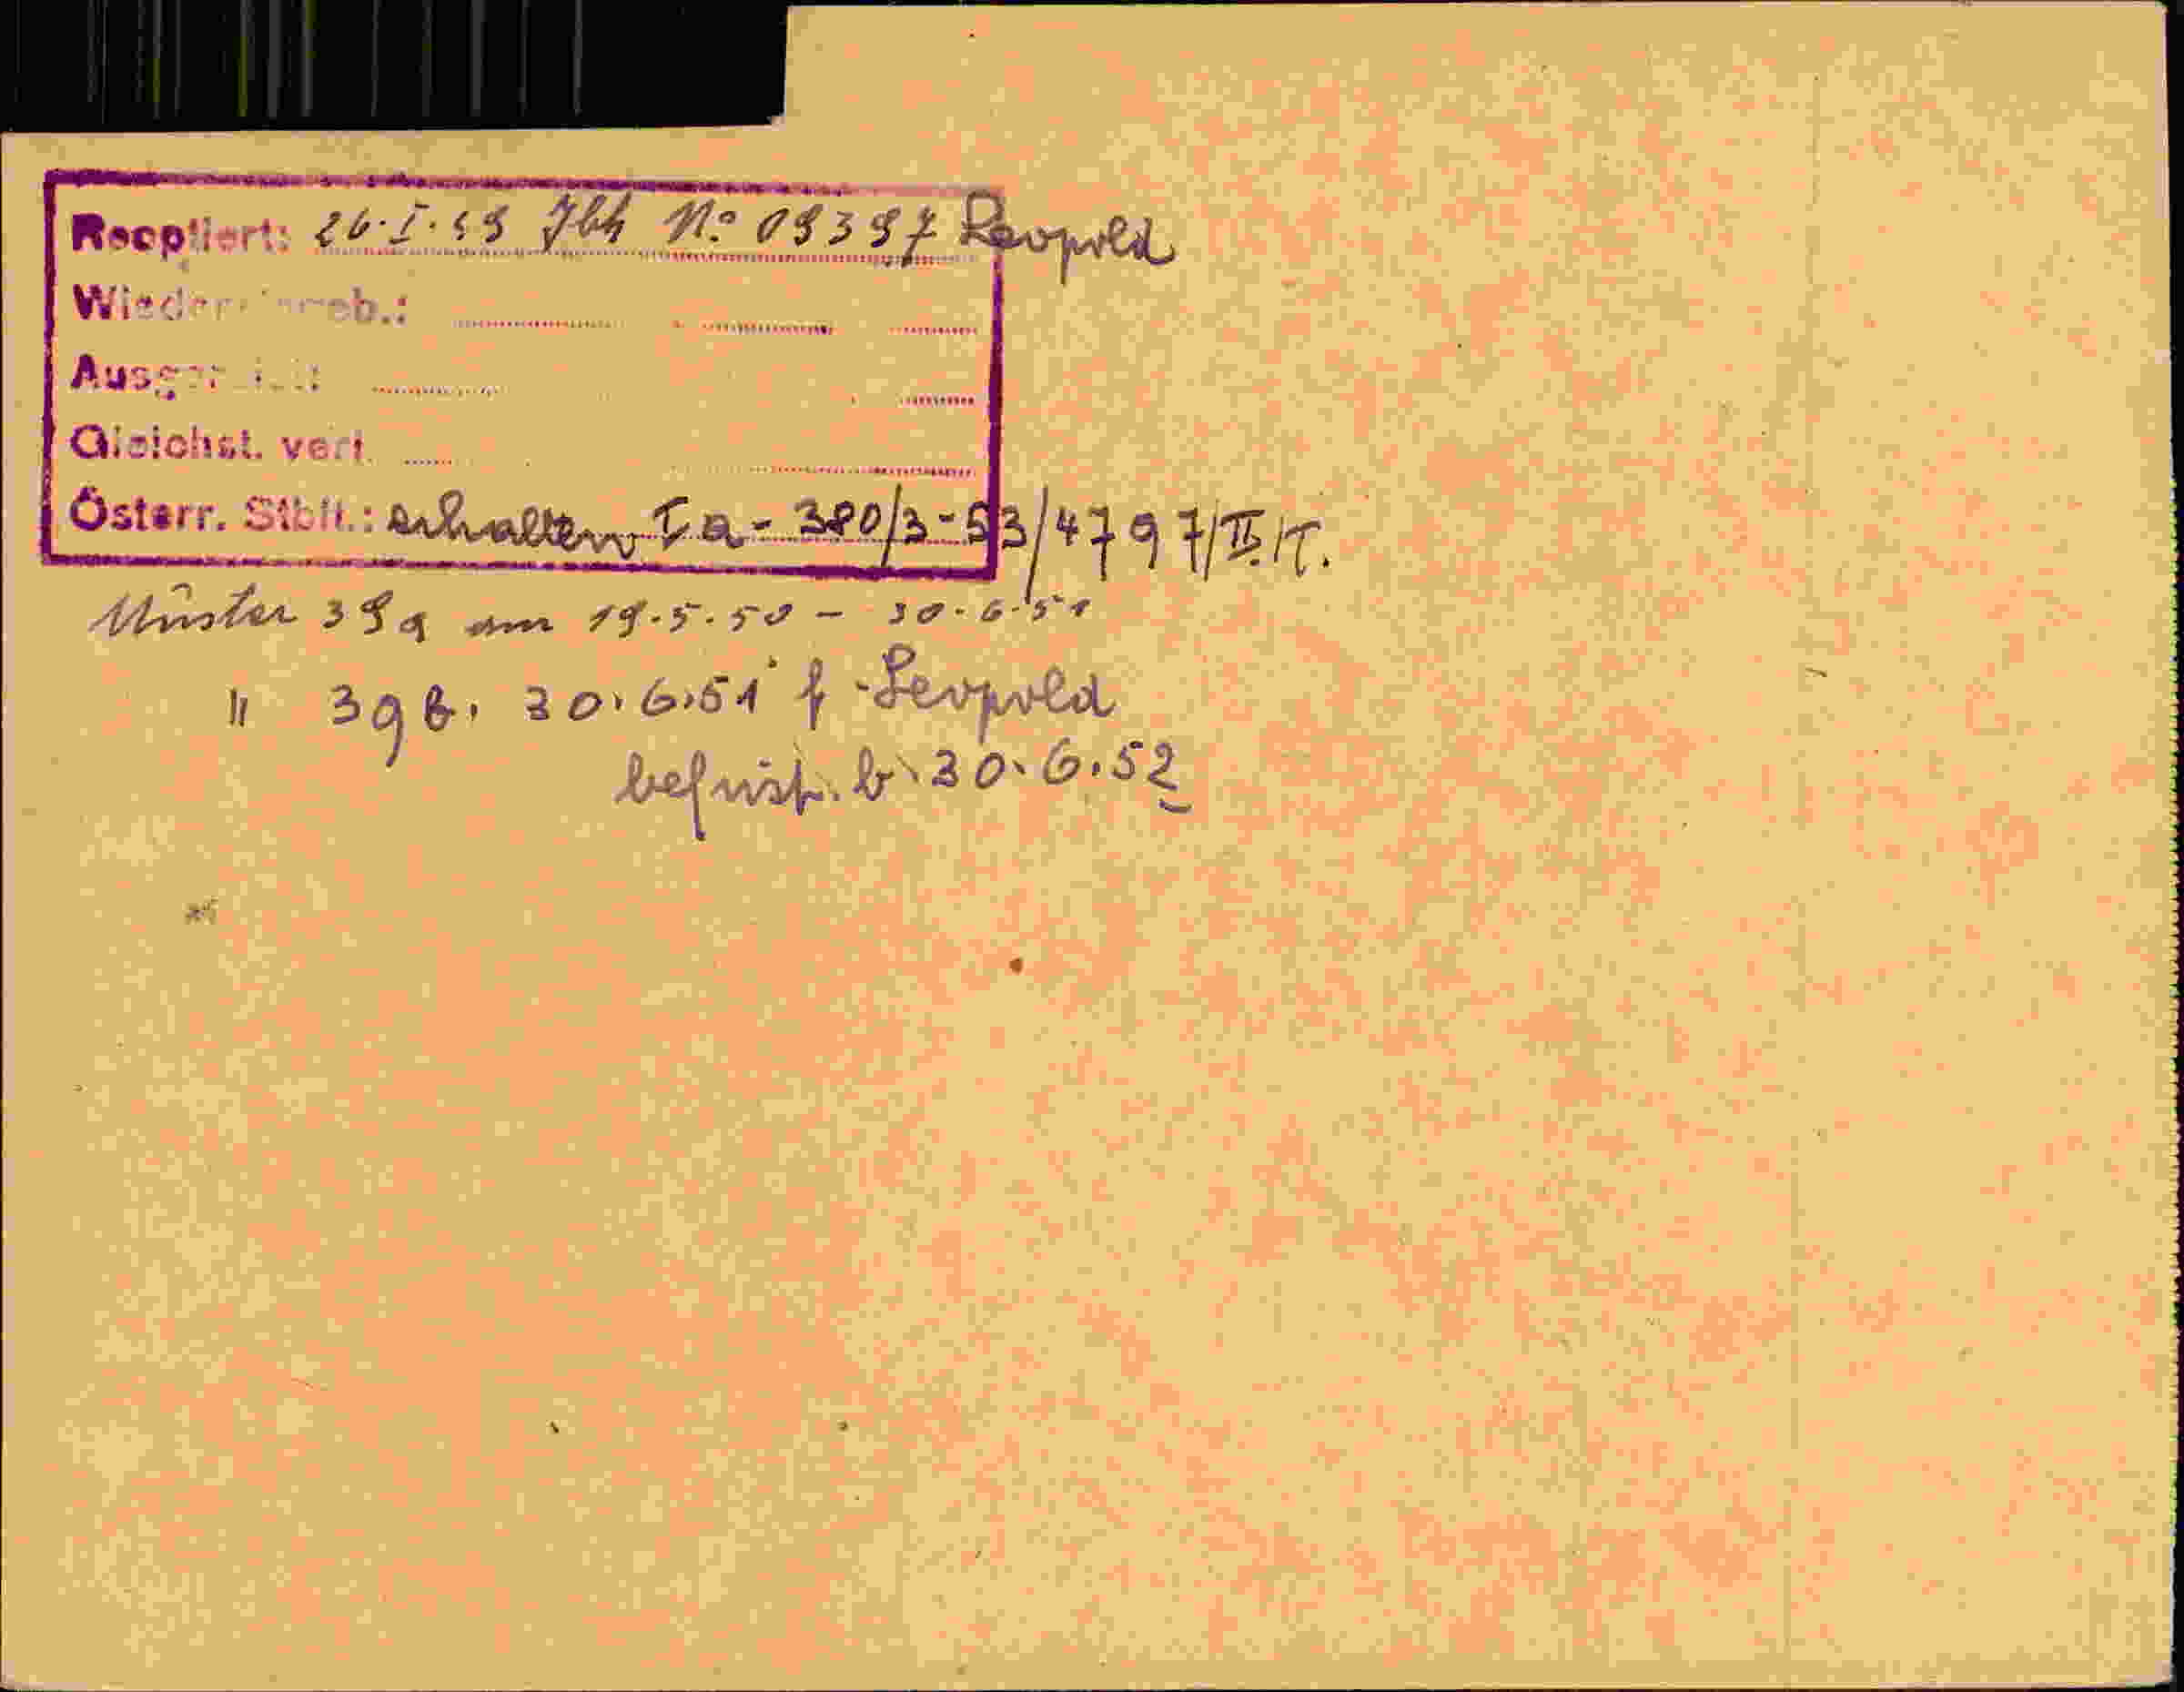 Reoptiert: 26.I.49 Jbk No 09397 Leopold
Wiedererwerb.:
Ausger
Gleichst. verl.
Österr. Stbft.: erhalten Ia-380/3-53/4797/II/T.
Muster 39a am 19.5.50 - 30.6.51
" 39b. 30.6.51 f Leopold
befrist. b. 30.6.52